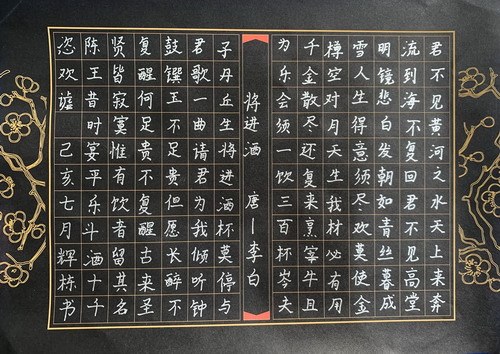 君不见黄河之水天上来奔
流到海不复回君不见高堂
明镜悲白发朝如青丝暮成
雪人生得意须尽欢莫使金
樽空对月天生我材必有用
千金散尽还复来烹宰牛且
为乐会须一饮三百杯岑夫
将进酒 唐—李白
子丹丘生将进酒杯莫停与
君歌一曲请君为我倾听钟
鼓馔玉不足贵但愿长醉不
复醒何足贵不复醒古来圣
贤皆寂寞惟有饮者留其名
陈王昔时宴平乐斗酒十千
恣欢谑 己亥七月辉栋书